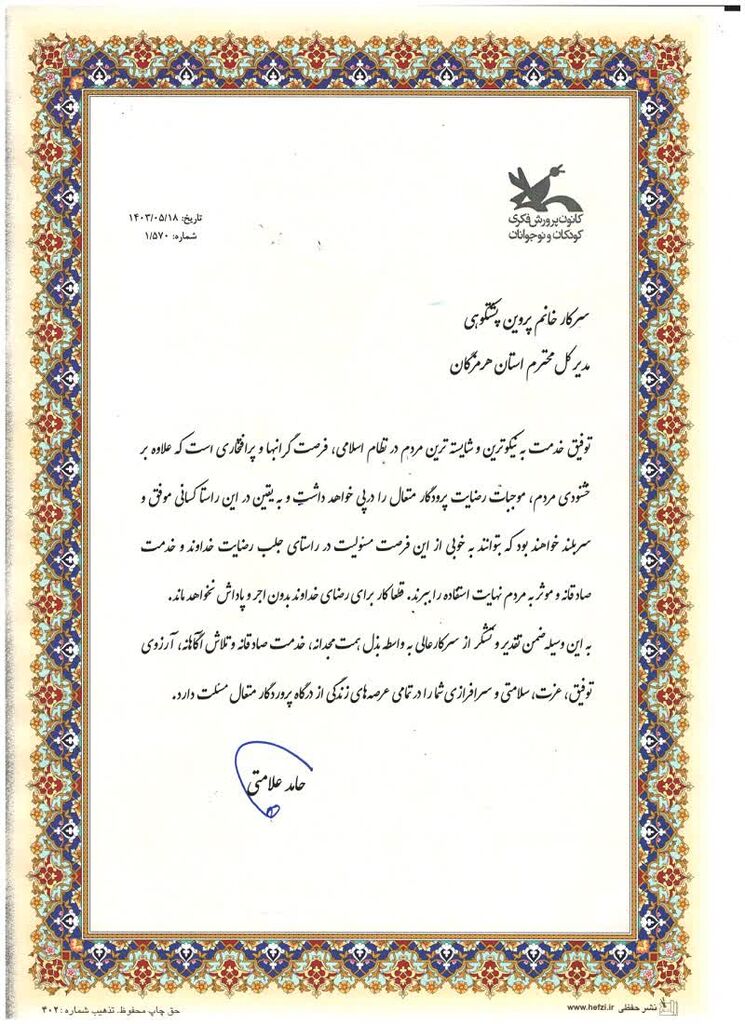 کانون پرورش فکری
کودکان و نوجوانان
تاریخ: ۱۴۰۳/۰۵/۱۸
شماره: ۱/۵۷۰
سرکار خانم پروین پشتکوهی
مدیر کل محترم استان هرمزگان
توفیق خدمت به نیکوترین و شایسته ترین مردم در نظام اسلامی، فرصت گرانبها و پرافتخاری است که علاوه بر
خشنودی مردم، موجبات رضایت پرودگار متعال را درپی خواهد داشت و به یقین در این راستا کسانی موفق و
سربلند خواهند بود که بتوانند به خوبی از این فرصت مسئولیت در راستای جلب رضایت خداوند و خدمت
صادقانه و موثر به مردم نهایت استفاده را ببرند. قطعا کار برای رضای خداوند بدون اجر و پاداش نخواهد ماند.
به این وسیله ضمن تقدیر و تشکر از سرکارعالی به واسطه بذل همت مجدانه، خدمت صادقانه و تلاش آگاهانه، آرزوی
توفیق، عزت، سلامتی و سرافرازی شما را در تمامی عرصه های زندگی از درگاه پروردگار متعال مسئلت دارد.
حامد علامتی
نشر حفظی www.hefzi.ir
حق چاپ محفوظ. تذهیب شماره: ۴۰۲